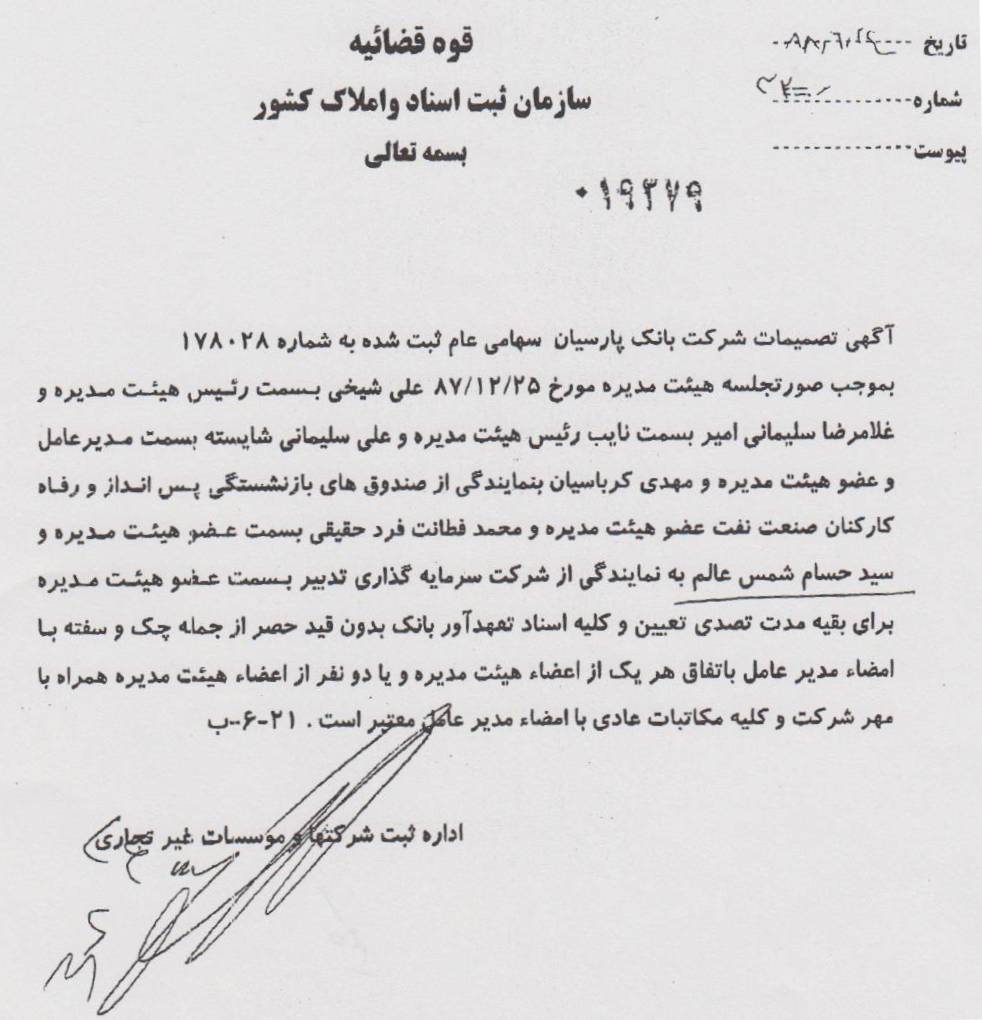 قوه قضائیه
سازمان ثبت اسناد واملاک کشور
بسمه تعالی
تاریخ
شماره
پیوست
۰۱۹۳۷۹
آگهی تصمیمات شرکت بانک پارسیان سهامی عام ثبت شده به شماره ۱۷۸۰۲۸
بموجب صورتجلسه هیئت مدیره مورخ ۸۷/۱۲/۲۵ علی شیخی بسمت رئیس هیئت مدیره و
غلامرضا سلیمانی امیر بسمت نایب رئیس هیئت مدیره و علی سلیمانی شایسته بسمت مدیرعامل
و عضو هیئت مدیره و مهدی کرباسیان بنمایندگی از صندوق های بازنشستگی پس انداز و رفاه
کارکنان صنعت نفت عضو هیئت مدیره و محمد فطانت فرد حقیقی بسمت عضو هیئت مدیره و
سید حسام شمس عالم به نمایندگی از شرکت سرمایه گذاری تدبیر بسمت عضو هیئت مدیره
برای بقیه مدت تصدی تعیین و کلیه اسناد تعهدآور بانک بدون قید حصر از جمله چک و سفته با
امضاء مدیر عامل باتفاق هر یک از اعضاء هیئت مدیره و یا دو نفر از اعضاء هیئت مدیره همراه با
مهر شرکت و کلیه مکاتبات عادی با امضاء مدیر عامل معتبر است . ۲۱-۶-ب
اداره ثبت شرکتها و موسسات غیر تجاری